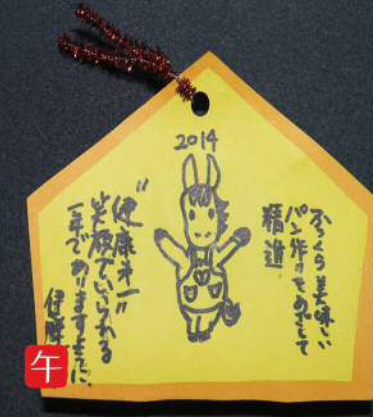 2014
ふっくら美味しい
パン作りをめざして
精進
"健康第一"
笑顔でいられる
一年でありますように。
伊藤
午